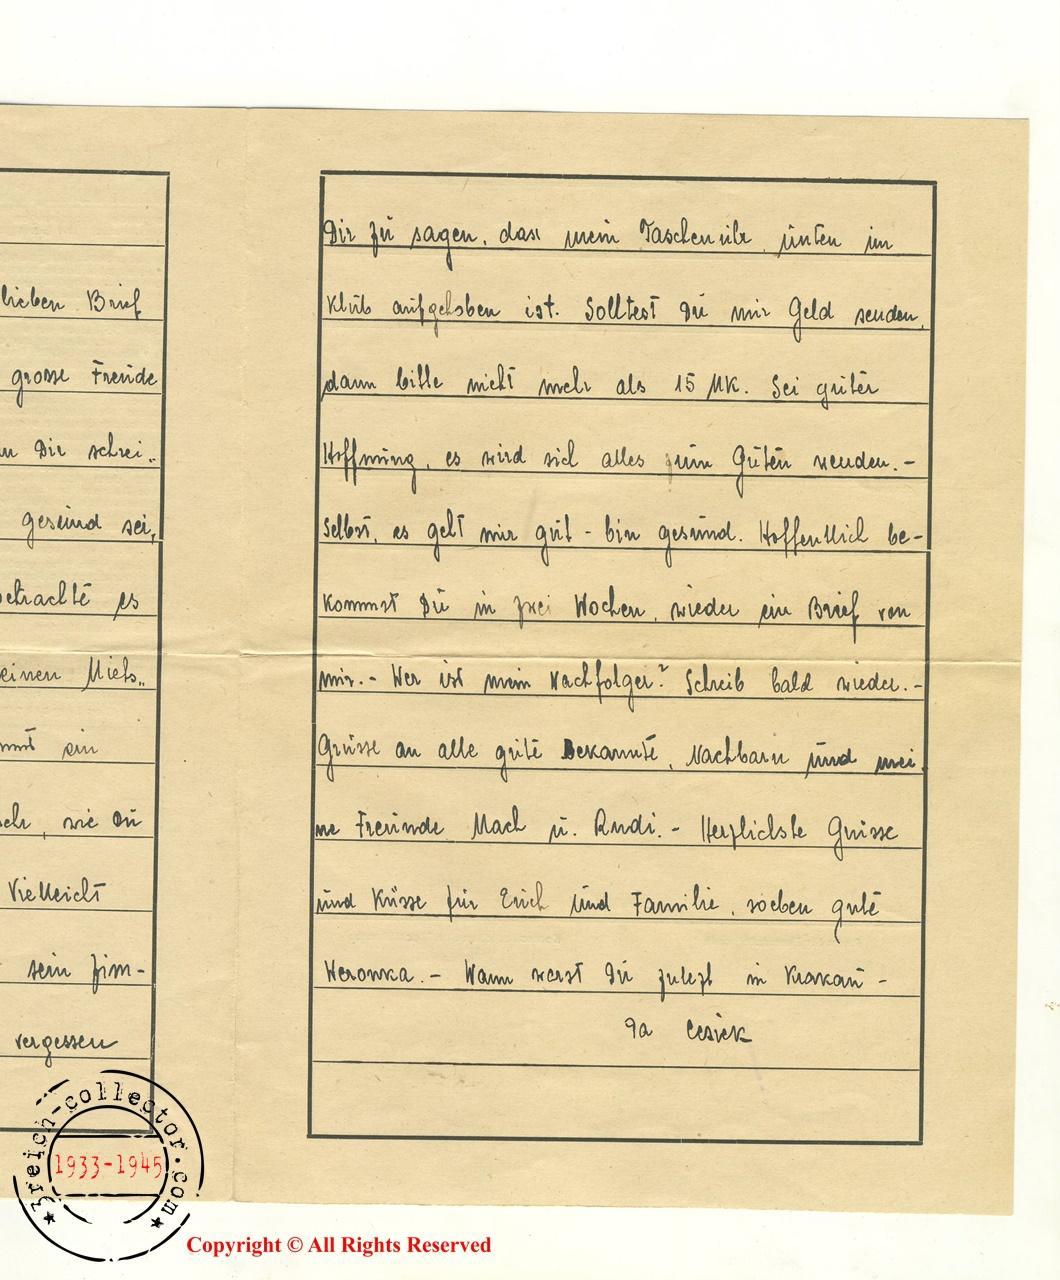 lieben Brief
grosse Freude
Dir schrei..
gesund sei,
betrachte es
einen Miets..
ein
, wie Du
Vielleicht
sein Zim-
vergessen
Dir zu sagen, dass mein Taschenuhr, unten im
Klub aufgehoben ist. Solltest Du mir Geld senden,
dann bitte nicht mehr als 15 MK. Sei guter
Hoffnung, es wird sich alles zum Guten wenden.-
Selbst, es geht mir gut - bin gesund. Hoffentlich be-
kommst Du in zwei Wochen, wieder ein Brief von
mir.- Wer ist mein Nachfolger? Schreib bald wieder.-
Grüsse an alle gute Bekannte, Nachbarn und mei
ne Freunde Mach u. Rudi.- Herzlichste Grüsse
und Küsse für Erich und Familie, soeben gute
Weronka.- Wann warst Du zuletzt in Krakau -
Cesiek
3reich-collector.com
1933-1945
Copyright © All Rights Reserved